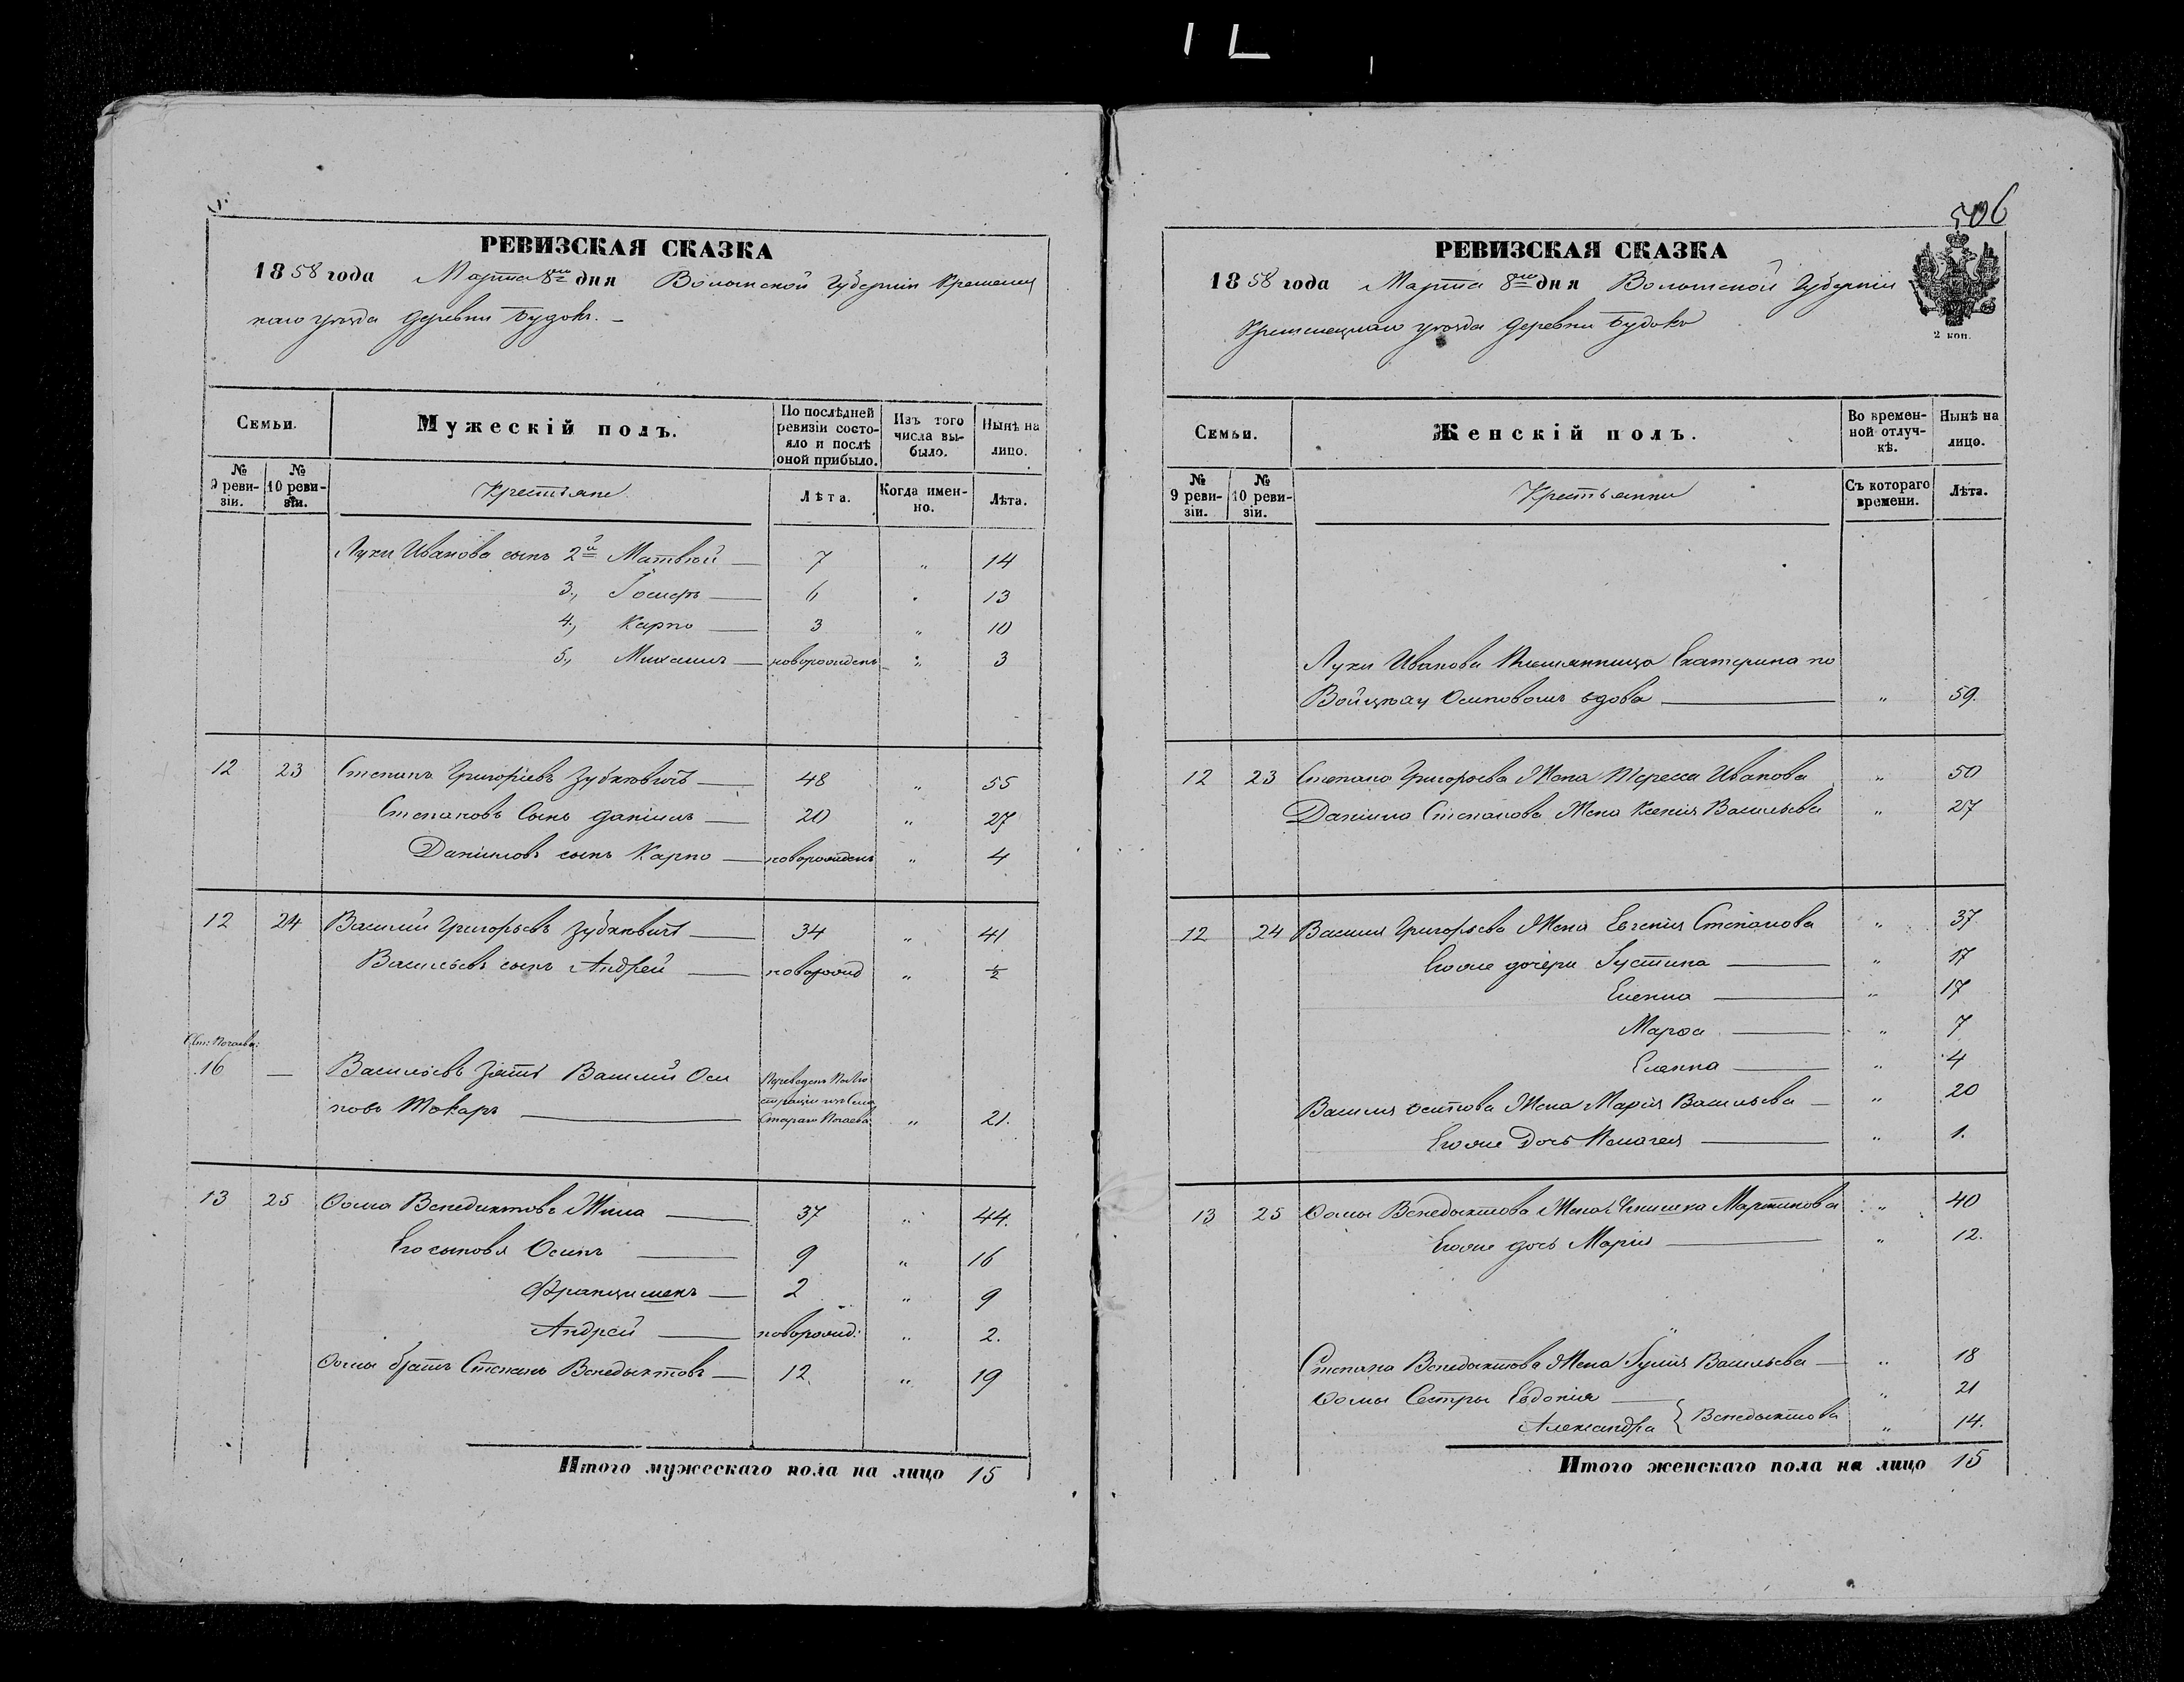 РЕВИЗСКАЯ СКАЗКА
1858 года Марта 8го дня Волынской Губернiи Кременец
каго уѣзда деревни Будокъ. –
Семьи.
Мужескiй полъ.
По послѣдней ревизiи состояло и послѣ оной прибыло.
Изъ того числа выбыло.
Нынѣ на лицо.
№ 9 ревизiи.
№ 10 ревизiи.
Крестьяне
Лѣта.
Когда именно.
Лѣта.
Луки Иванова сынъ 2й Матвѣй — 7 „ 14
3., Iосифъ — 6 „ 13
4., Карпо — 3 „ 10
5., Михаилъ — новорожденъ „ 3
12 23 Степанъ Григорiевъ Зубкевичъ — 48 „ 55
Степановъ Сынъ Данiилъ — 20 „ 27
Данiиловъ сынъ Карпо — новорожденъ „ 4
12 24 Василий Григорьевъ Зубкевичъ — 34 „ 41
Васильевъ сынъ Андрей — новорожд „ ½
Ст: Почаева:
16 — Васильевъ зять Василий Оси
повъ Токаръ —
Переведенъ
Стараго Почаева „ 21.
13 25 Ѳома Венедиктовъ — 37 „ 44.
Его сыновья Осипъ — 9 „ 16
Францишекъ — 2 „ 9
Андрей — новорожд: „ 2.
Ѳомы братъ Степанъ Венедыктовъ — 12. „ 19
Итого мужескаго пола на лицо 15
506
РЕВИЗСКАЯ СКАЗКА
1858 года Марта 8го дня Волынской Губернiи
Кременецкаго уѣзда деревни Будокъ
2 коп.
Семьи.
Женскiй полъ.
Во временной отлучкѣ.
Нынѣ на лицо.
№ 9 ревизiи.
№ 10 ревизiи.
Крестьянки
Съ котораго времени.
Лѣта.
Луки Иванова Племянница Екатерина по
Осиповомъ вдова — „ 59.
12 23 Степана Григорьева Жена Тереса Иванова „ 50
Данiила Степанова Жена Ксенiя Васильева „ 27
12 24 Василия Григорьева Жена Евгенiя Степанова „ 37
Егоже дочери Iустина — „ 17
Еленна — „ 17
Марѳа — „ 7
Еленна — „ 4
Василия Осипова Жена Марiя Васильева — „ 20
Егоже Дочь Пелагея — „ 1.
13 25 Ѳомы Венедыктова Жена Мартинова „ 40
Егоже дочь Марiя — „ 12.
Степана Венедыктова Жена Iулiя Васильева — „ 18
Ѳомы Сестры Евдокiя — „ 21
Александра } Венедыктова „ 14.
Итого женскаго пола на лицо 15